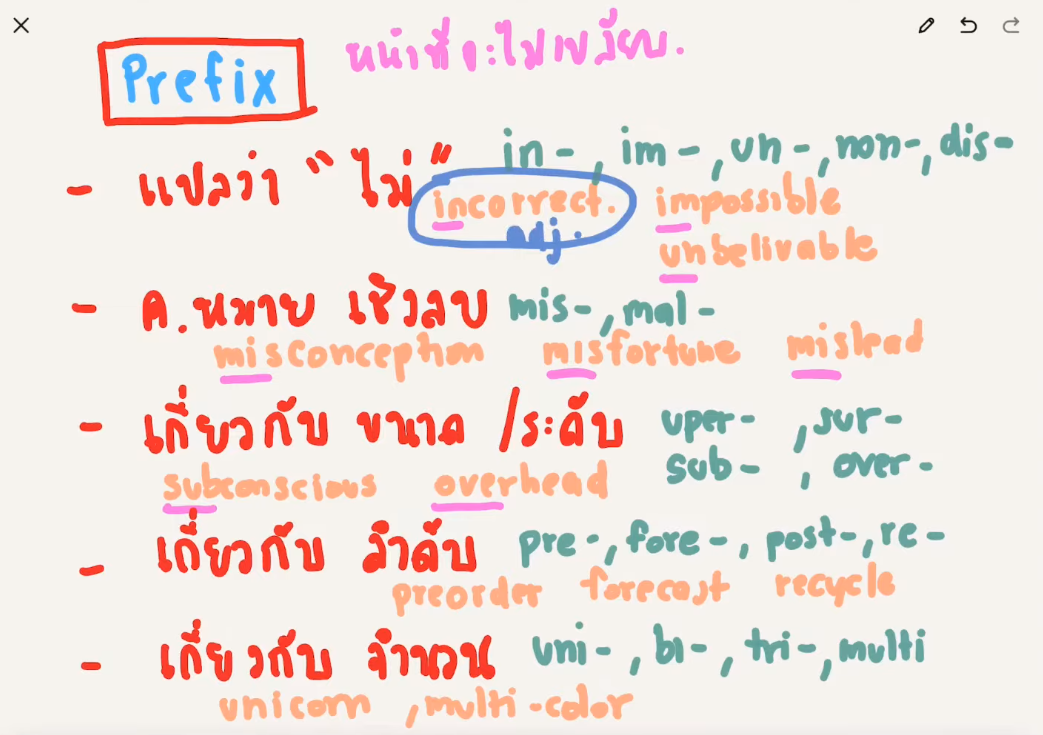 Prefix หน้าที่จะไม่เปลี่ยน.
- แปลว่า "ไม่" in-, im-, un-, non-, dis-
incorrect. impossible
adj. unbelivable
- ค.หมาย เชิงลบ mis-, mal-
misconception misfortune mislead
- เกี่ยวกับ ขนาด /ระดับ uper-, sur-
sub-, over-
subconscious overhead
- เกี่ยวกับ ลำดับ pre-, fore-, post-, re-
preorder forecast recycle
- เกี่ยวกับ จำนวน uni-, bi-, tri-, multi
unicorn, multi-color